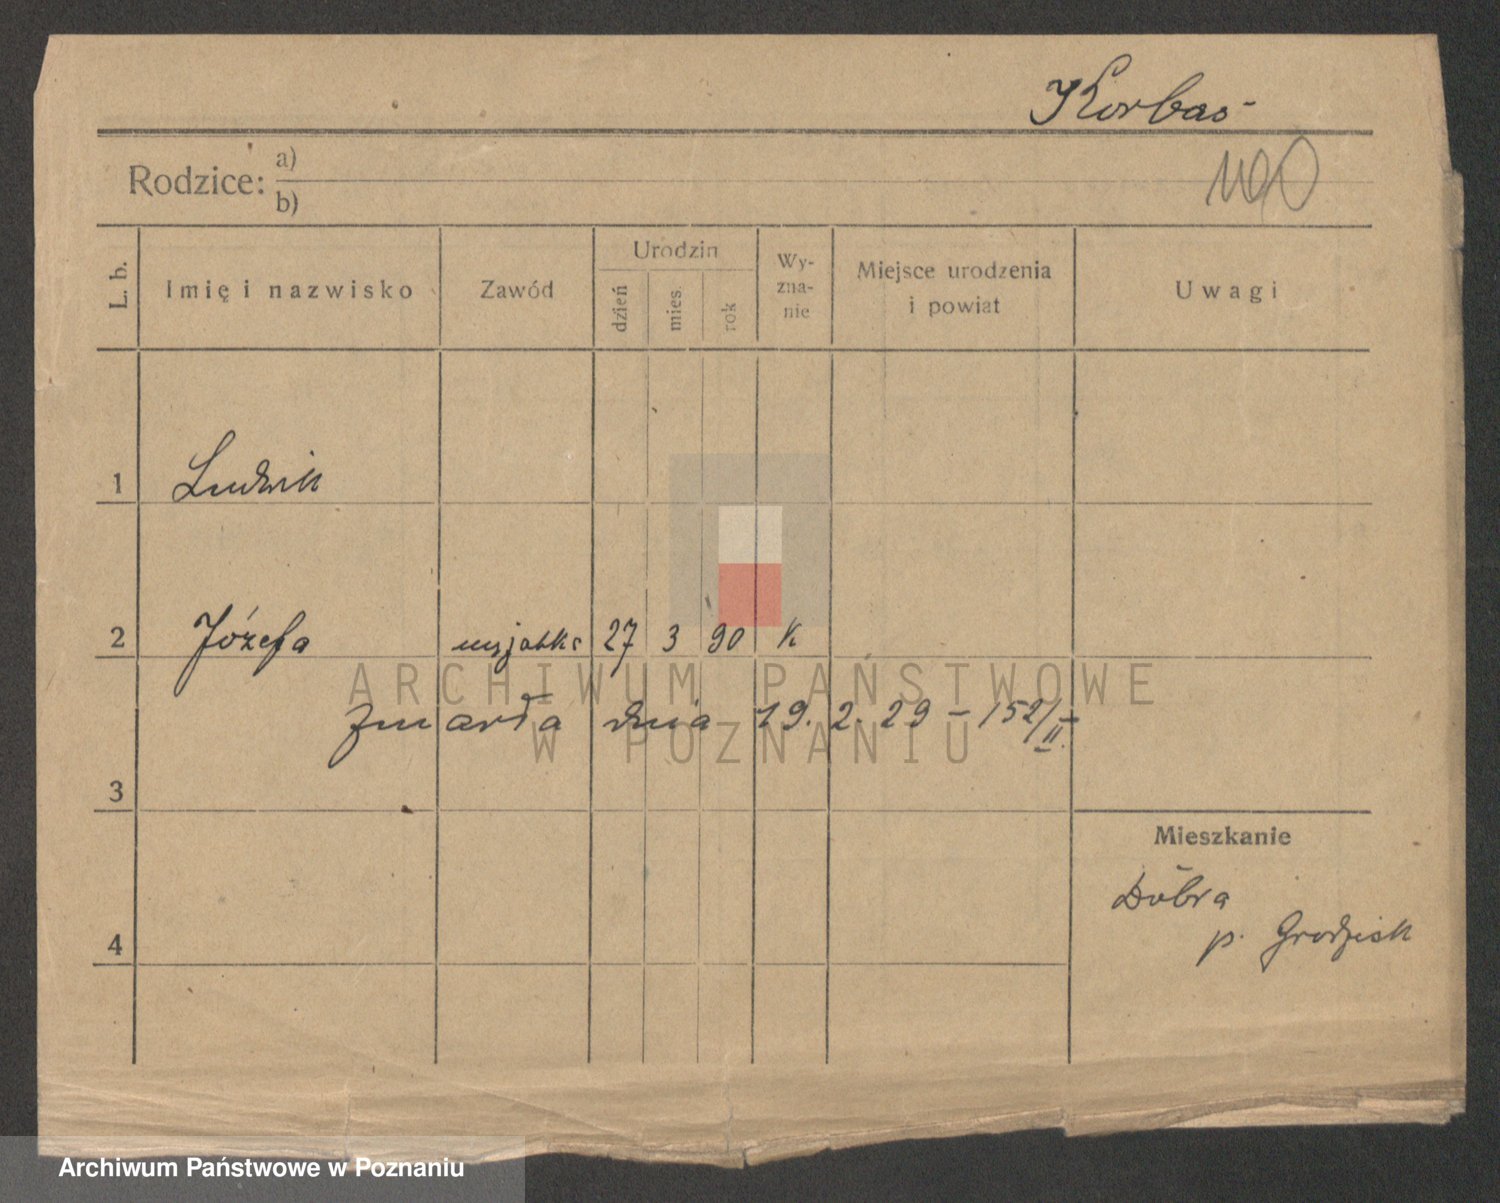 Korbas
Rodzice: a)
b)
L. b.
Imię i nazwisko
Zawód
Urodzin
dzień
mies.
rok
Wy-
zna-
nie
Miejsce urodzenia
i powiat
Uwagi
1 Ludwik
2 Józefa 27 3 90 K
zmarła dnia 19. 2. 29 – 152/II
3
Mieszkanie
Dobra
p. Grodzisk
4
ARCHIWUM PAŃSTWOWE
W POZNANIU
Archiwum Państwowe w Poznaniu